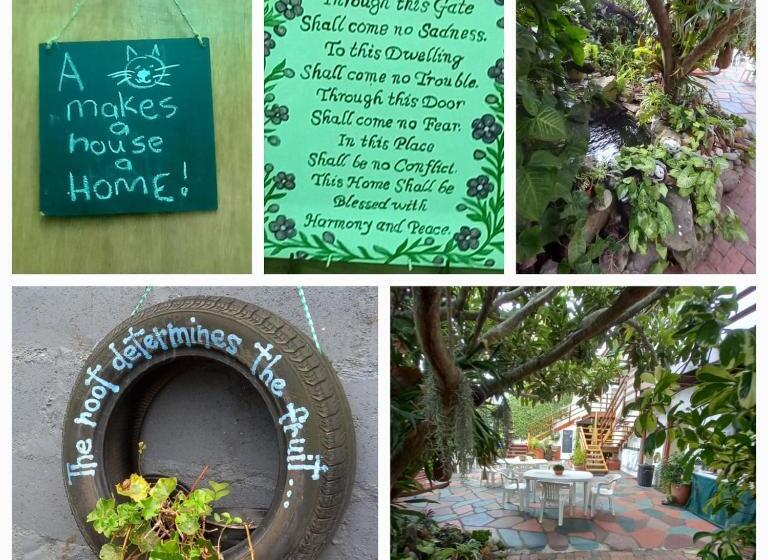 A
makes
a
house
a
HOME!
Through this Gate
Shall come no Sadness.
To this Dwelling
Shall come no Trouble.
Through this Door
Shall come no Fear.
In this Place
Shall be no Conflict.
This Home Shall be
Blessed with
Harmony and Peace.
The root determines the fruit...